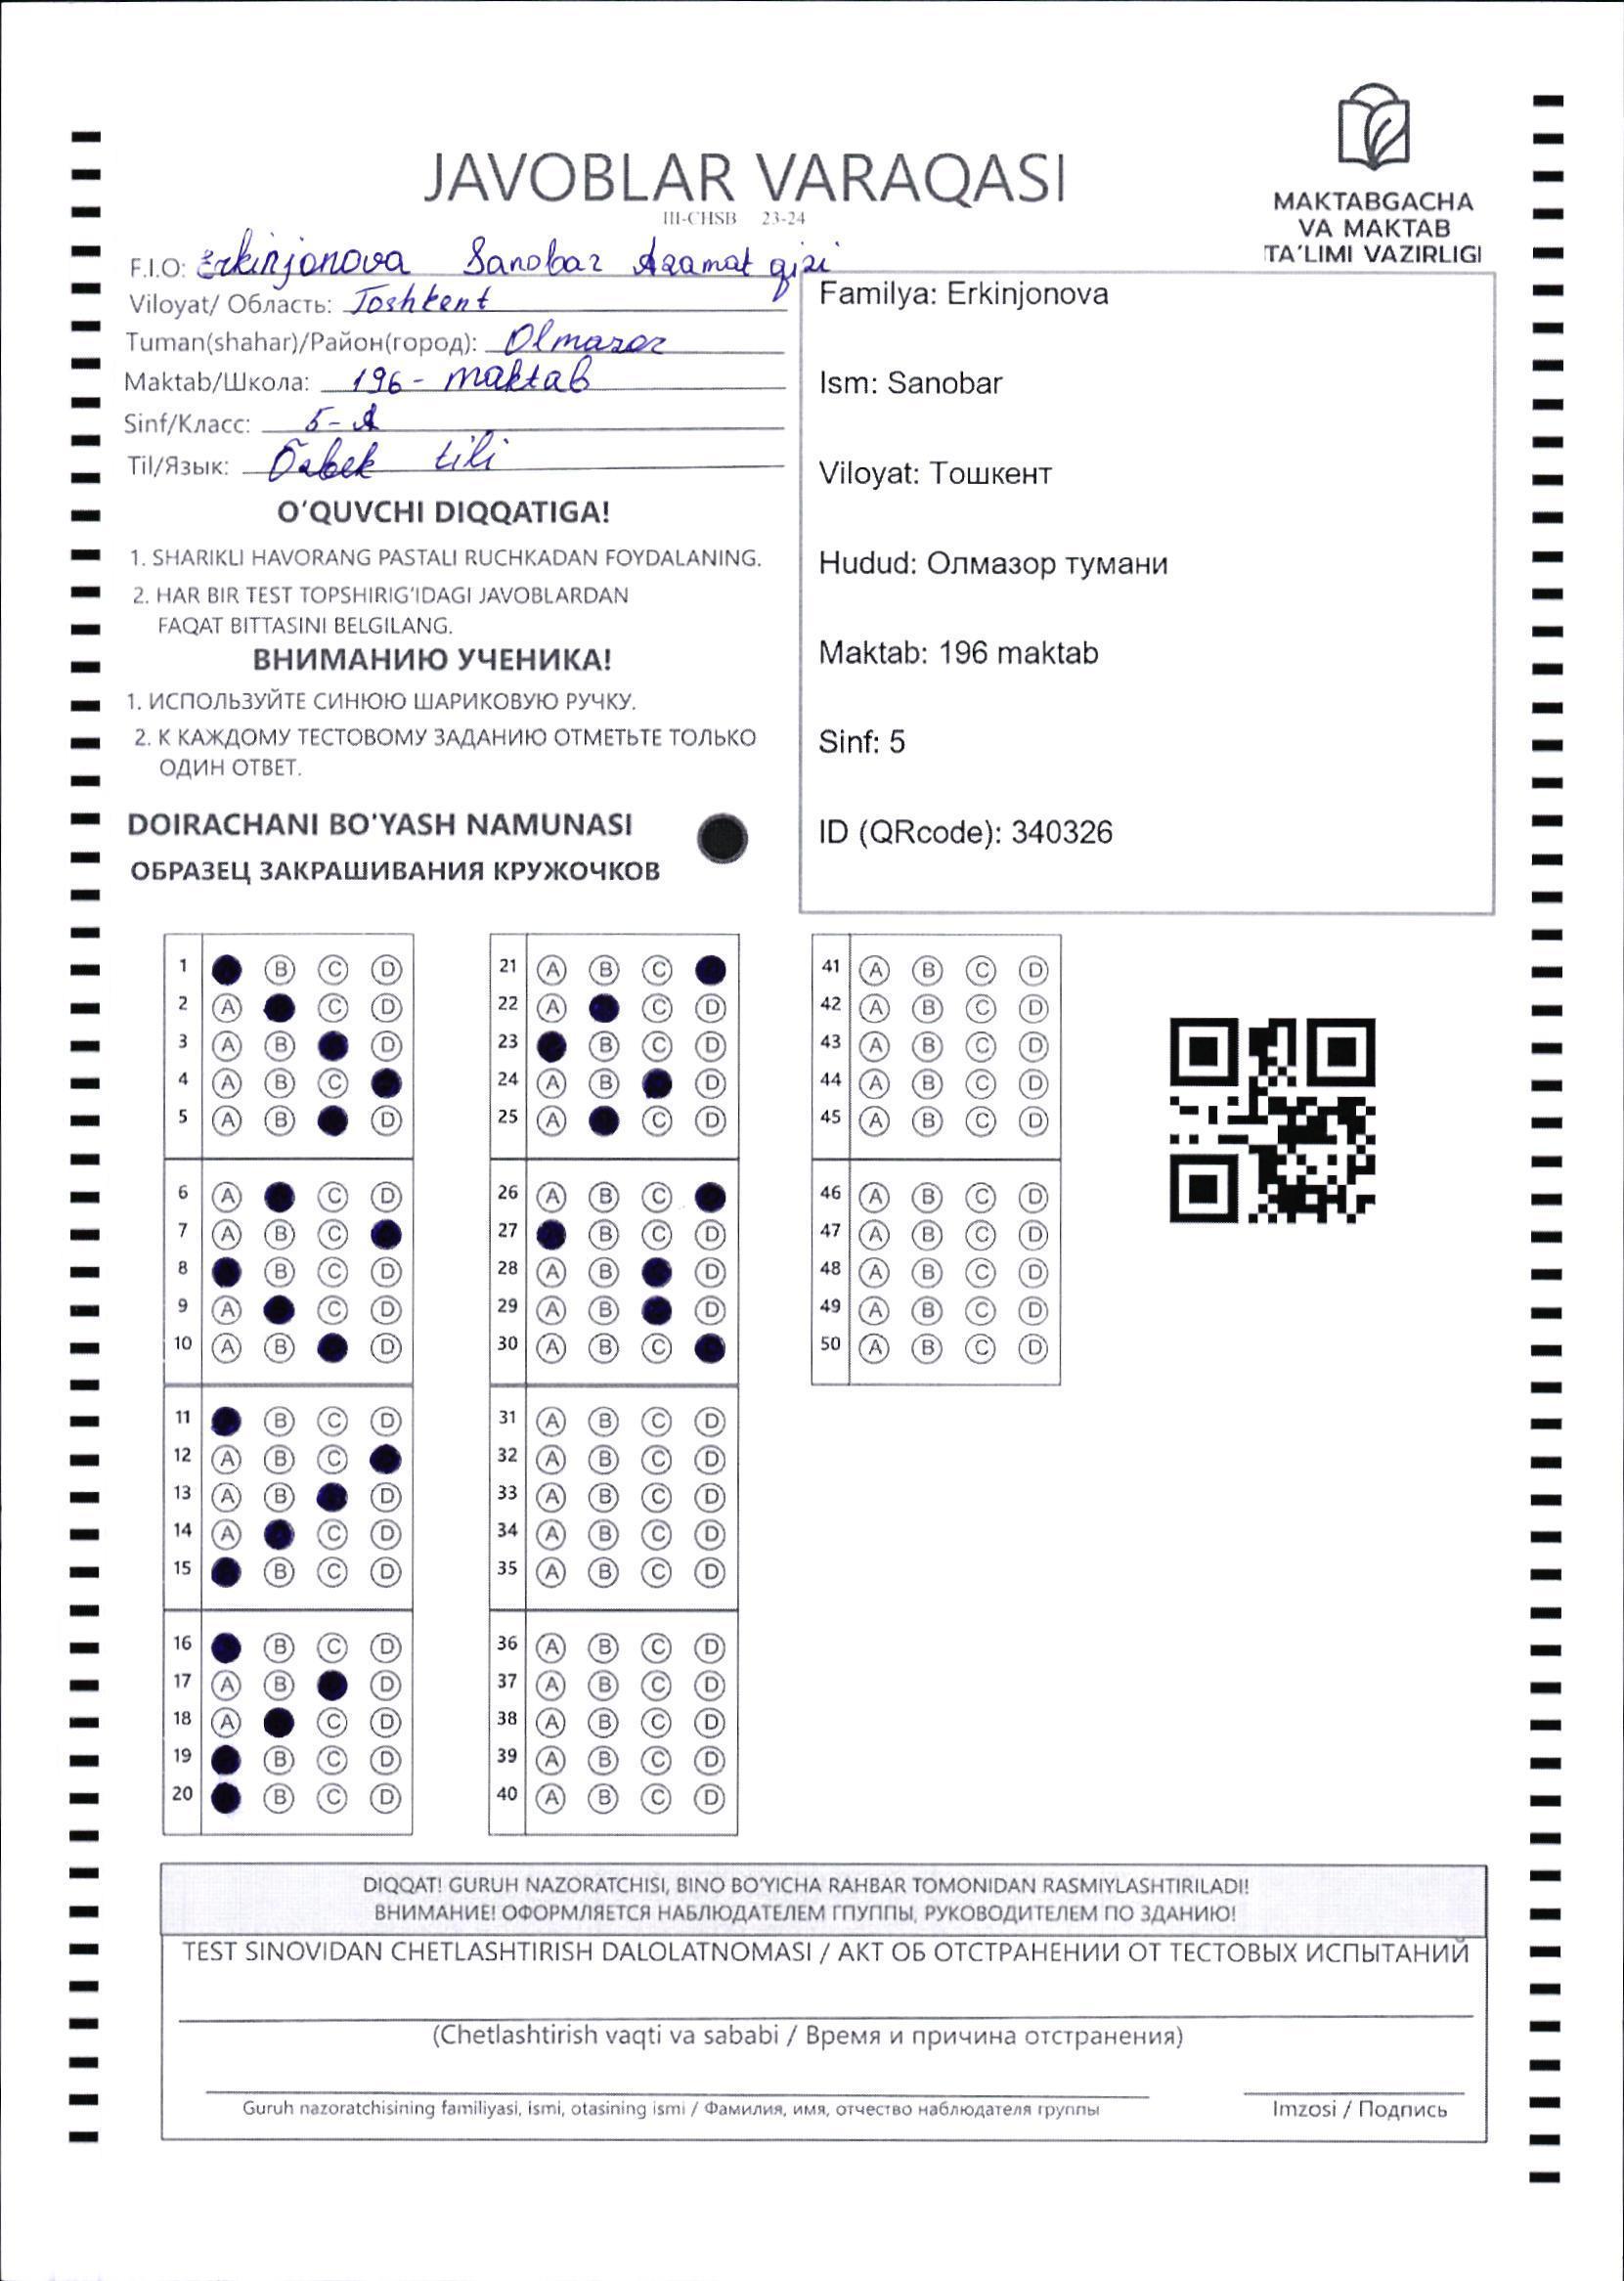 JAVOBLAR VARAQASI
III-CHSB 23-24
MAKTABGACHA
VA MAKTAB
TA'LIMI VAZIRLIGI
F.I.O: Erkinjonova Sanobar Azamat qizi
Viloyat/ Область: Toshkent
Tuman(shahar)/Район(город): Olmazor
Maktab/Школа: 196- maktab
Sinf/Класс: 5-A
Til/Язык: Õzbek tili
Familya: Erkinjonova
Ism: Sanobar
Viloyat: Тошкент
Hudud: Олмазор тумани
Maktab: 196 maktab
Sinf: 5
ID (QRcode): 340326
O'QUVCHI DIQQATIGA!
1. SHARIKLI HAVORANG PASTALI RUCHKADAN FOYDALANING.
2. HAR BIR TEST TOPSHIRIG'IDAGI JAVOBLARDAN
FAQAT BITTASINI BELGILANG.
ВНИМАНИЮ УЧЕНИКА!
1. ИСПОЛЬЗУЙТЕ СИНЮЮ ШАРИКОВУЮ РУЧКУ.
2. К КАЖДОМУ ТЕСТОВОМУ ЗАДАНИЮ ОТМЕТЬТЕ ТОЛЬКО
ОДИН ОТВЕТ.
DOIRACHANI BO'YASH NAMUNASI
ОБРАЗЕЦ ЗАКРАШИВАНИЯ КРУЖОЧКОВ
1 B C D
2 A C D
3 A B D
4 A B C
5 A B D
6 A C D
7 A B C
8 B C D
9 A C D
10 A B D
11 B C D
12 A B C
13 A B D
14 A C D
15 B C D
16 B C D
17 A B D
18 A C D
19 B C D
20 B C D
21 A B C
22 A C D
23 B C D
24 A B D
25 A C D
26 A B C
27 B C D
28 A B D
29 A B D
30 A B C
31 A B C D
32 A B C D
33 A B C D
34 A B C D
35 A B C D
36 A B C D
37 A B C D
38 A B C D
39 A B C D
40 A B C D
41 A B C D
42 A B C D
43 A B C D
44 A B C D
45 A B C D
46 A B C D
47 A B C D
48 A B C D
49 A B C D
50 A B C D
DIQQAT! GURUH NAZORATCHISI, BINO BO'YICHA RAHBAR TOMONIDAN RASMIYLASHTIRILADI!
ВНИМАНИЕ! ОФОРМЛЯЕТСЯ НАБЛЮДАТЕЛЕМ ГПУППЫ, РУКОВОДИТЕЛЕМ ПО ЗДАНИЮ!
TEST SINOVIDAN CHETLASHTIRISH DALOLATNOMASI / АКТ ОБ ОТСТРАНЕНИИ ОТ ТЕСТОВЫХ ИСПЫТАНИЙ
(Chetlashtirish vaqti va sababi / Время и причина отстранения)
Guruh nazoratchisining familiyasi, ismi, otasining ismi / Фамилия, имя, отчество наблюдателя группы
Imzosi / Подпись